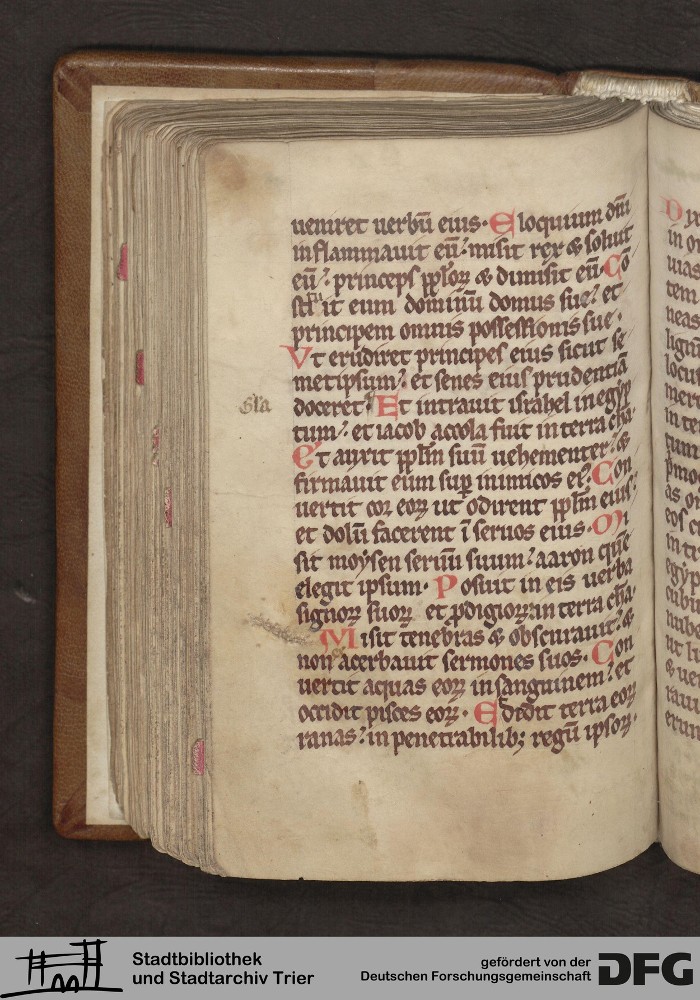 ueniret uerbū eius. Eloquium dn̄i
inflammauit eū: misit rex & soluit
eū: princeps ppl'oꝝ & dimisit eū. Cō
stituit eum dominū domus sue: et
principem omnis possessionis sue.
Vt erudiret principes eius sicut se
metipsum: et senes eius prudentiā
doceret. Et intrauit israhel in egyp
tum: et iacob accola fuit in terra cha.
Et auxit ppl̄m suū uehementer: &
firmauit eum suꝑ inimicos eꝰ. Con
uertit cor eoꝝ ut odirent ppl̄m eius:
et dolū facerent ī seruos eius. Mi
sit moysen seruū suum: aaron quē
elegit ipsum. Posuit in eis uerba
signoꝝ suoꝝ et ꝓdigioꝝ in terra cha.
Misit tenebras & obscurauit: &
non acerbauit sermones suos. Con
uertit aquas eoꝝ in sanguinem: et
occidit pisces eoꝝ. Edidit terra eoꝝ
ranas: in penetrabilib; regū ipsoꝝ.
Gl'a
in
uias
tem
neas
lignū
locus
in te
tum
as
eos
in
egyp
cubi
nube
ut
& uen
erun
Stadtbibliothek
und Stadtarchiv Trier
gefördert von der
Deutschen Forschungsgemeinschaft
DFG